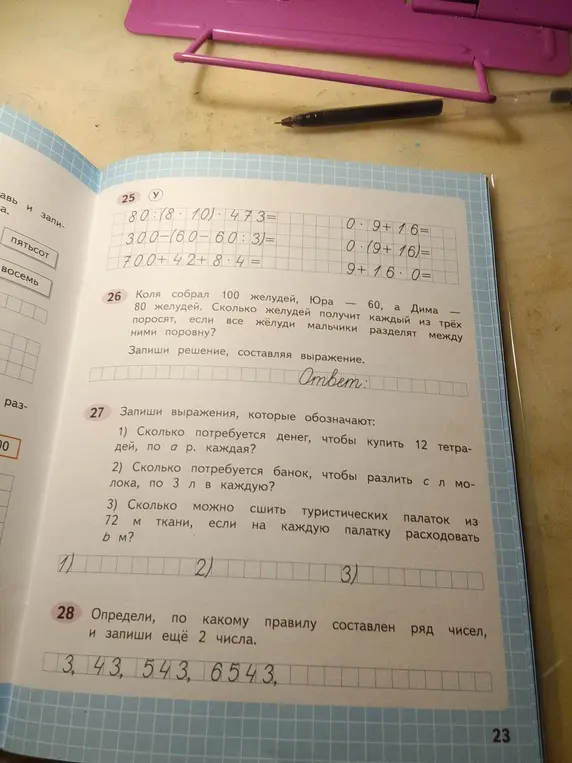 авь и запи-
а.
пятьсот
восемь
раз-
00
25 У
80:(8·10)·473=
300-(60-60:3)=
700+42+8·4=
0·9+16=
0·(9+16)=
9+16·0=
26 Коля собрал 100 желудей, Юра — 60, а Дима —
80 желудей. Сколько желудей получит каждый из трёх
поросят, если все жёлуди мальчики разделят между
ними поровну?
Запиши решение, составляя выражение.
Ответ:
27 Запиши выражения, которые обозначают:
1) Сколько потребуется денег, чтобы купить 12 тетра-
дей, по a р. каждая?
2) Сколько потребуется банок, чтобы разлить c л мо-
лока, по 3 л в каждую?
3) Сколько можно сшить туристических палаток из
72 м ткани, если на каждую палатку расходовать
b м?
1) 2) 3)
28 Определи, по какому правилу составлен ряд чисел,
и запиши ещё 2 числа.
3, 43, 543, 6543,
23